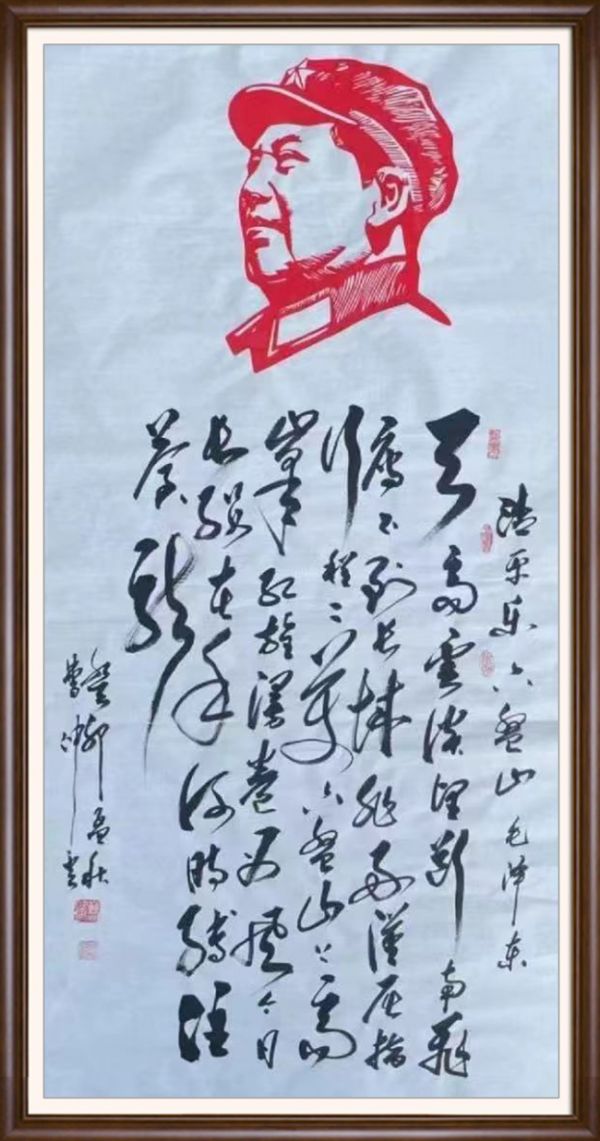 清平乐六盘山 毛泽东
天高雲淡望断南飛
雁不到长城非好漢屈指
行程二萬六盘山上高
峰红旗漫卷西風今日
长缨在手何时缚住
苍龍
癸卯孟秋